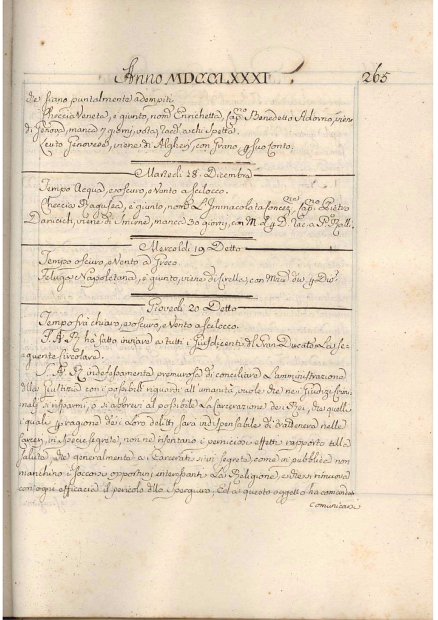 Anno MDCCLXXXI
265
de siano puntalmente adempiti.
Checcia Veneta, è giunto, nom. Enrichetta, Capno Benedetto Adorno, viene
di Genova, manca 7 giorni, vota, Racc. a chi Spetta.
Leuto Genovese, viene di Algheri, con Grano p suo Conto.
Martedì 18. Dicembre
Tempo Acqua, e oscuro, e Vento a Scilocco.
Checcia Ragusea, è giunto, nomta L'Immacolata Concezne, Capno Pietro
Danicich, viene di Smirne, manca 30 giorni, con M. d. 4 D. Rac. a
Mercoldì 19 Detto
Tempo oscuro, e Vento a Greco.
Feluga Napoletana, è giunto, viene di Cirella, con 4
Giovedì 20 Detto
Tempo frà chiaro, e oscuro, e Vento a Scilocco.
S. A. R. hà fatto inviare a tutti i Giusdicenti del Gran Ducato La se=
=guente Circolare.
S. A. R. indefessamente premurosa di conciliare L'amministrazione
della Giustizia con i possibili riguardi all'umanità, vuole che nei Giudizi Crim=
nali si risparmi, o si abbrevi al possibile La Carcerazione dei Rei, che quelli
i quali p ragione dei loro delitti sarà indispensabile di trattenere nelle
Carceri, in specie segrete, non ne risentano i perniciosi effetti rapporto alla
salute, che generalmente ai Carcerati sì in segreta, come in pubblica non
manchino i soccorsi opportuni interessanti La Religione, e che si rimuova
con ogni efficacia il pericolo dello Spergiuro; Ed a questo oggetto ha comandato
comunicare